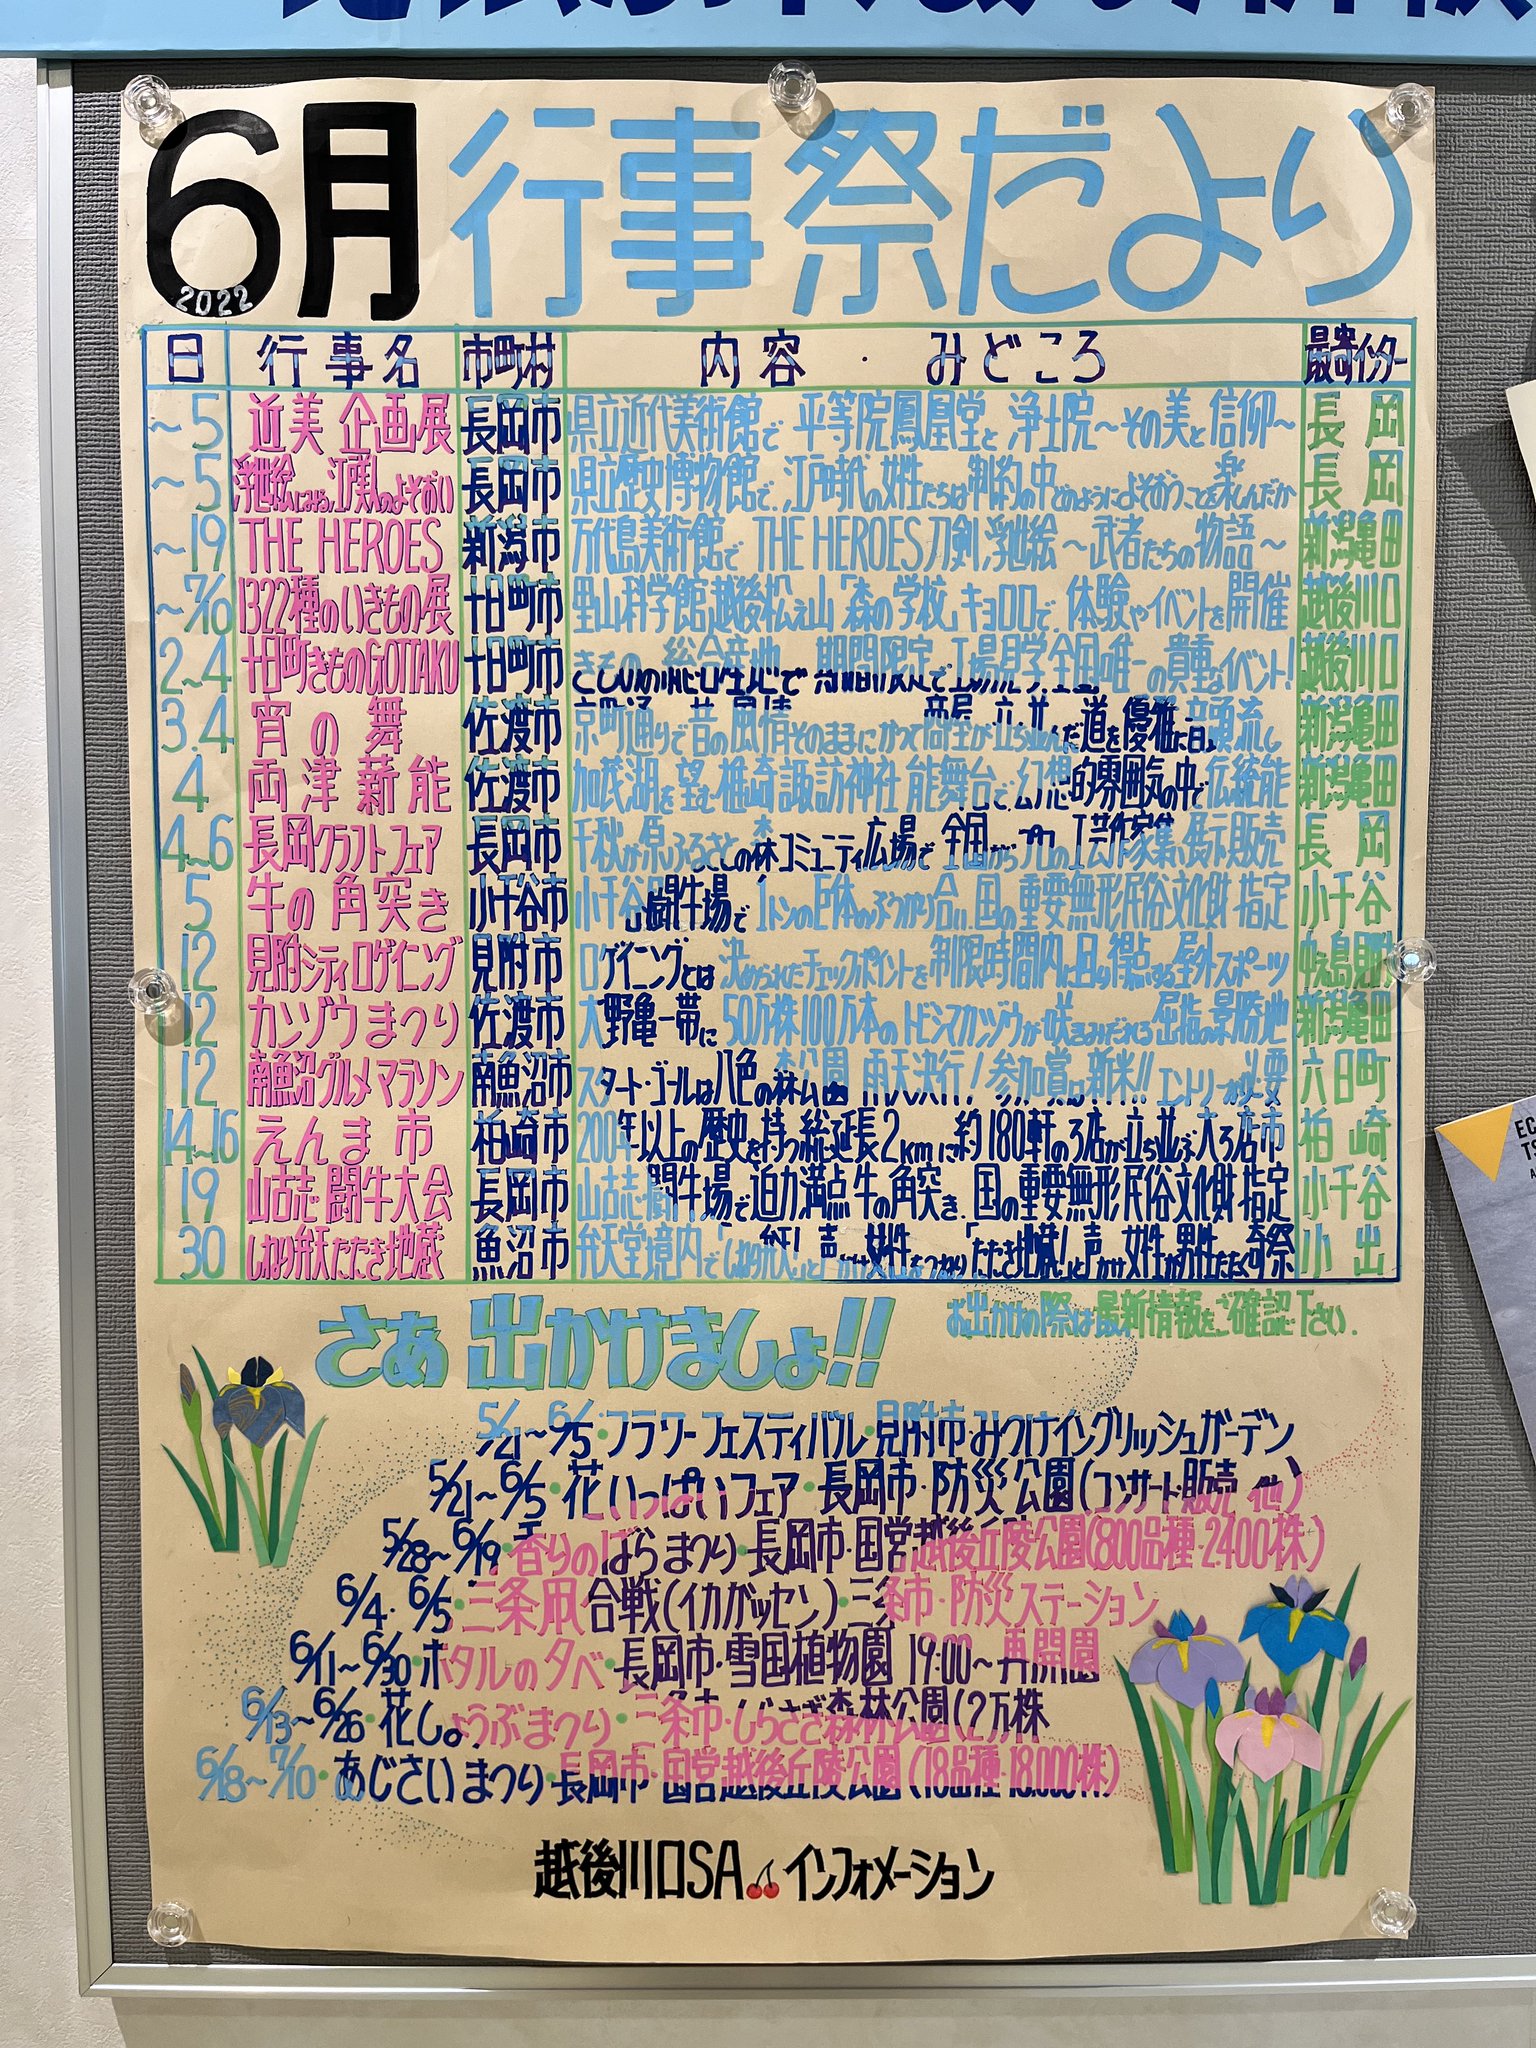 6月 行事祭だより
2022
日 行事名 市町村 内容・みどころ 最寄インター
～5 近美 企画展 長岡市 県立近代美術館で 平等院鳳凰堂と 浄土院～その美と信仰～ 長岡
～5 浮世絵にみる江戸美人のよそおい 長岡市 県立歴史博物館で、江戸時代の女性たちは制約の中どのようによそおうことを楽しんだか 長岡
～19 THE HEROES 新潟市 万代島美術館で THE HEROES 刀剣浮世絵～武者たちの物語～ 新潟亀田
～7/10 1322種のいきもの展 十日町市 里山科学館越後松之山「森の学校」キョロロで、体験やイベントを開催 越後川口
2～4 十日町きものGOTTAKU 十日町市 きものの総合産地で 期間限定で工場見学全国唯一の貴重なイベント! 越後川口
3.4 宵の舞 佐渡市 京町通りで昔の風情そのままにかつて商屋が立ち並んだ道を優雅に音頭流し 新潟亀田
4 両津薪能 佐渡市 加茂湖を望む椎崎諏訪神社 能舞台で、幻想的雰囲気の中で伝統能 新潟亀田
4～6 長岡クラフトフェア 長岡市 千秋が原ふるさとの森コミュニティ広場で 全国からプロの工芸作家集い展示販売 長岡
5 牛の角突き 小千谷市 小千谷闘牛場で 1トンの巨体のぶつかり合い、国の重要無形民俗文化財指定 小千谷
12 見附シティロゲイニング 見附市 ロゲイニングとは 決められたチェックポイントを制限時間内に回り得点する屋外スポーツ 中之島見附
12 カンゾウまつり 佐渡市 大野亀一帯に 50万株100万本のトビシマカンゾウが咲きみだれる 屈指の景勝地 新潟亀田
12 南魚沼グルメマラソン 南魚沼市 スタート・ゴールは八色の森公園 雨天決行! 参加賞は新米!! エントリーが必要 六日町
14～16 えんま市 柏崎市 200年以上の歴史を持つ総延長2kmに約180軒の露店が立ち並ぶ大露店市 柏崎
19 山古志闘牛大会 長岡市 山古志闘牛場で迫力満点牛の角突き、国の重要無形民俗文化財指定 小千谷
30 しねり弁天たたき地蔵 魚沼市 弁天堂境内で「しねり弁天」と声かけ女性をつねり「たたき地蔵」と声かけ女性が男性をたたく奇祭 小出
さあ 出かけましょ!!
お出かけの際は最新情報をご確認下さい.
5/21～6/5・フラワーフェスティバル・見附市・みつけイングリッシュガーデン
5/21～6/5・花いっぱいフェア・長岡市・防災公園(コンサート・販売 他)
5/28～6/19・香りのばらまつり・長岡市・国営越後丘陵公園(800品種・2400株)
6/4・6/5・三条凧合戦(イカガッセン)三条市・防災ステーション
6/11～6/30・ホタルの夕べ・長岡市・雪国植物園 19:00～再開園
6/13～6/26・花しょうぶまつり・三条市・しらさぎ森林公園(2万株
6/18～7/10・あじさいまつり・長岡市・国営越後丘陵公園(18品種・18,000株)
越後川口SA インフォメーション